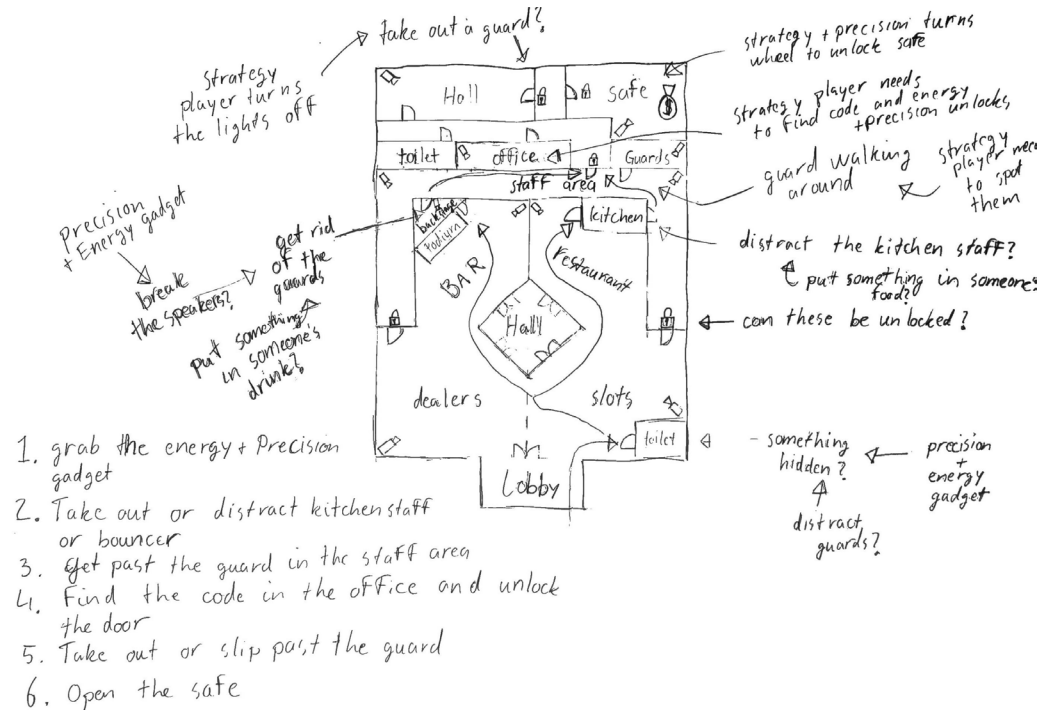 take out a guard?
strategy
player turns
the lights off
strategy + precision turns
wheel to unlock safe
strategy player needs
to find code and energy
+precision unlocks
guard walking
around
strategy
player need
to spot
them
Hall
safe
toilet
office
Guards
staff area
backstage
Podium
kitchen
Precision
+ Energy gadget
break
the speakers?
get rid
of the
guards
put something
in someone's
drink?
BAR
restaurant
Hally
distract the kitchen staff?
put something in someones
food?
can these be unlocked?
dealers
slots
toilet
Lobby
- something
hidden?
precision
+
energy
gadget
distract
guards?
1. grab the energy + Precision
gadget
2. Take out or distract kitchen staff
or bouncer
3. get past the guard in the staff area
4. Find the code in the office and unlock
the door
5. Take out or slip past the guard
6. Open the safe